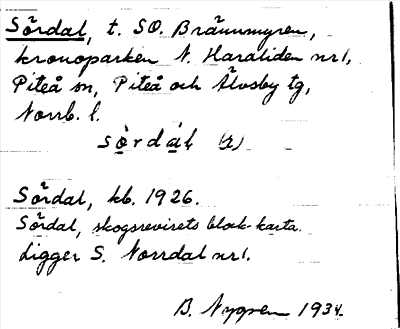 Sördal, t. SO. Brännmyren,
kronoparken N. Haraliden nr 1,
Piteå sn, Piteå och Älvsby tg,
Norrb. l.
sö̀rdál, (2)
Sördal, kb. 1926.
Sördal, skogsrevirets block-karta.
Ligger S. Norrdal nr 1.
B. Nygren 1934.